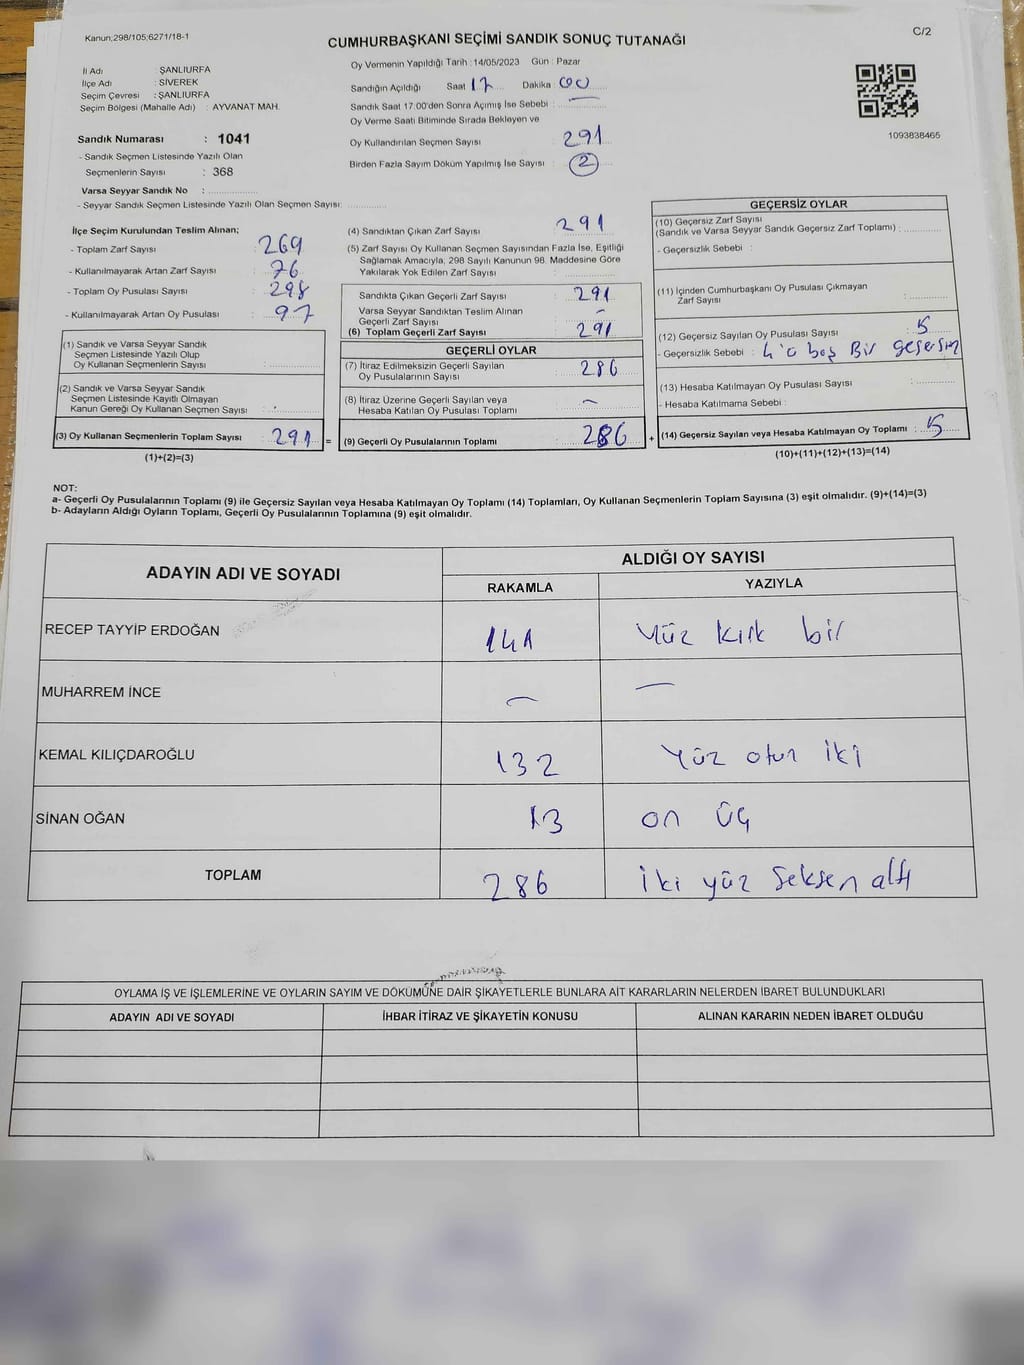 Kanun;298/105;6271/18-1
C/2
CUMHURBAŞKANI SEÇİMİ SANDIK SONUÇ TUTANAĞI
İl Adı ŞANLIURFA
İlçe Adı : SİVEREK
Seçim Çevresi : ŞANLIURFA
Seçim Bölgesi (Mahalle Adı) : AYVANAT MAH.
Sandık Numarası : 1041
- Sandık Seçmen Listesinde Yazılı Olan
Seçmenlerin Sayısı : 368
Varsa Seyyar Sandık No :
- Seyyar Sandık Seçmen Listesinde Yazılı Olan Seçmen Sayısı:
Oy Vermenin Yapıldığı Tarih : 14/05/2023 Gün : Pazar
Sandığın Açıldığı Saat 17 Dakika 00
Sandık Saat 17:00'den Sonra Açımış İse Sebebi : —
Oy Verme Saati Bitiminde Sırada Bekleyen ve
Oy Kullandırılan Seçmen Sayısı : 291
Birden Fazla Sayım Döküm Yapılmış İse Sayısı : 2
1093838465
İlçe Seçim Kurulundan Teslim Alınan;
- Toplam Zarf Sayısı : 269
- Kullanılmayarak Artan Zarf Sayısı : 76
- Toplam Oy Pusulası Sayısı : 298
- Kullanılmayarak Artan Oy Pusulası : 97
(1) Sandık ve Varsa Seyyar Sandık
Seçmen Listesinde Yazılı Olup
Oy Kullanan Seçmenlerin Sayısı :
(2) Sandık ve Varsa Seyyar Sandık
Seçmen Listesinde Kayıtlı Olmayan
Kanun Gereği Oy Kullanan Seçmen Sayısı :
(3) Oy Kullanan Seçmenlerin Toplam Sayısı : 291 =
(1)+(2)=(3)
(4) Sandıktan Çıkan Zarf Sayısı : 291
(5) Zarf Sayısı Oy Kullanan Seçmen Sayısından Fazla İse, Eşitliği
Sağlamak Amacıyla, 298 Sayılı Kanunun 98. Maddesine Göre
Yakılarak Yok Edilen Zarf Sayısı :
Sandıkta Çıkan Geçerli Zarf Sayısı : 291
Varsa Seyyar Sandıktan Teslim Alınan
Geçerli Zarf Sayısı : —
(6) Toplam Geçerli Zarf Sayısı : 291
GEÇERLİ OYLAR
(7) İtiraz Edilmeksizin Geçerli Sayılan
Oy Pusulalarının Sayısı : 286
(8) İtiraz Üzerine Geçerli Sayılan veya
Hesaba Katılan Oy Pusulası Toplamı : —
(9) Geçerli Oy Pusulalarının Toplamı : 286 +
GEÇERSİZ OYLAR
(10) Geçersiz Zarf Sayısı
(Sandık ve Varsa Seyyar Sandık Geçersiz Zarf Toplamı) :
- Geçersizlik Sebebi :
(11) İçinden Cumhurbaşkanı Oy Pusulası Çıkmayan
Zarf Sayısı :
(12) Geçersiz Sayılan Oy Pusulası Sayısı : 5
- Geçersizlik Sebebi : 4'ü boş Bir geçersiz
(13) Hesaba Katılmayan Oy Pusulası Sayısı :
- Hesaba Katılmama Sebebi :
(14) Geçersiz Sayılan veya Hesaba Katılmayan Oy Toplamı : 5
(10)+(11)+(12)+(13)=(14)
NOT:
a- Geçerli Oy Pusulalarının Toplamı (9) ile Geçersiz Sayılan veya Hesaba Katılmayan Oy Toplamı (14) Toplamları, Oy Kullanan Seçmenlerin Toplam Sayısına (3) eşit olmalıdır. (9)+(14)=(3)
b- Adayların Aldığı Oyların Toplamı, Geçerli Oy Pusulalarının Toplamına (9) eşit olmalıdır.
ADAYIN ADI VE SOYADI ALDIĞI OY SAYISI
RAKAMLA YAZIYLA
RECEP TAYYİP ERDOĞAN 141 Yüz kırk bir
MUHARREM İNCE — —
KEMAL KILIÇDAROĞLU 132 Yüz otuz iki
SİNAN OĞAN 13 on üç
TOPLAM 286 İki yüz Seksen altı
OYLAMA İŞ VE İŞLEMLERİNE VE OYLARIN SAYIM VE DÖKÜMÜNE DAİR ŞİKAYETLERLE BUNLARA AİT KARARLARIN NELERDEN İBARET BULUNDUKLARI
ADAYIN ADI VE SOYADI İHBAR İTİRAZ VE ŞİKAYETİN KONUSU ALINAN KARARIN NEDEN İBARET OLDUĞU